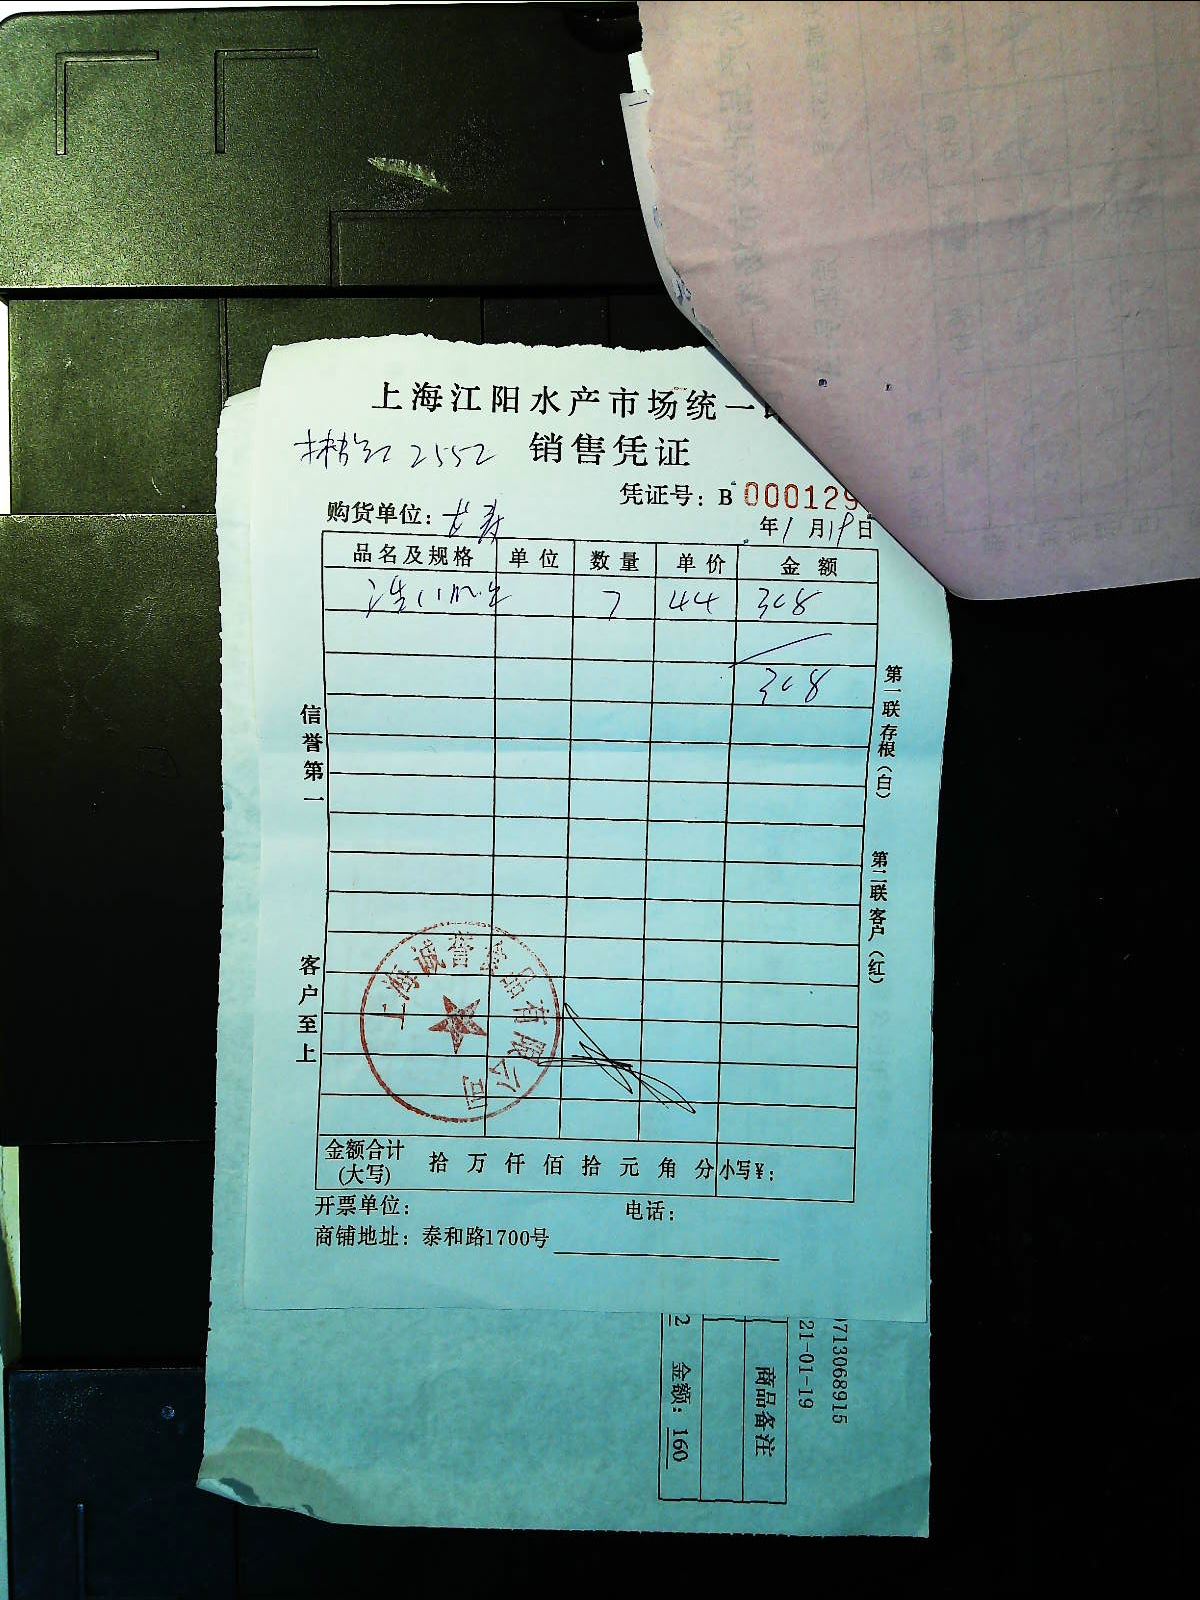 上海江阳水产市场统一
2552 销售凭证
凭证号：B 000129
购货单位：
年1月19日
品名及规格 单位 数量 单价 金额
7 44 308
308
信誉第一
客户至上
第一联存根（白）
第二联客户（红）
上海诚誉食品有限公司
金额合计（大写） 拾 万 仟 佰 拾 元 角 分 小写¥：
开票单位： 电话：
商铺地址：泰和路1700号
713068915
21-01-19
商品备注
2 金额：160